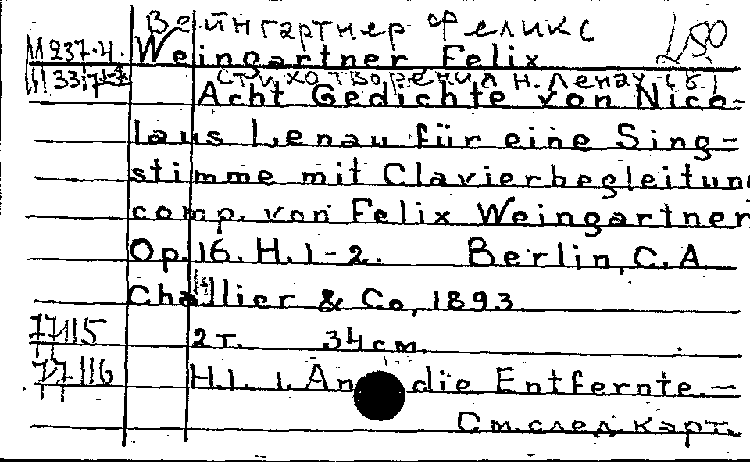 Вейнгартнер Феликс 280
М 237-4. Weingartner Felix
(Стихотворения Н. Ленау (8)
Acht Gedichte von Nico-
laus Lenau für eine Sing-
stimme mit Clavierbegleitung
comp. von Felix Weingartner
Op. 16. H. 1-2. Berlin, C. A
Challier & Co, 1893
77115 2 т. 34 см.
77116 H.1. 1. An die Entfernte.—
См. след. карт.